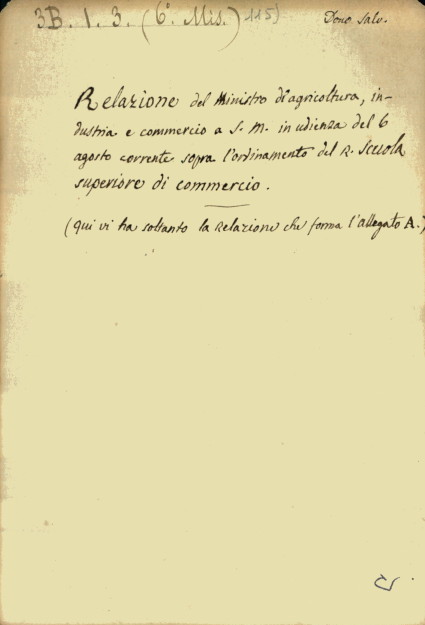 3B. 1. 3. (6ª Mis.) 115)
Dono Salv.
Relazione del Ministro di agricoltura, in-
dustria e commercio a S. M. in udienza del 6
agosto corrente sopra l'ordinamento del R. Scuola
superiore di commercio.
(Qui vi ha soltanto la Relazione che forma l'allegato A.)